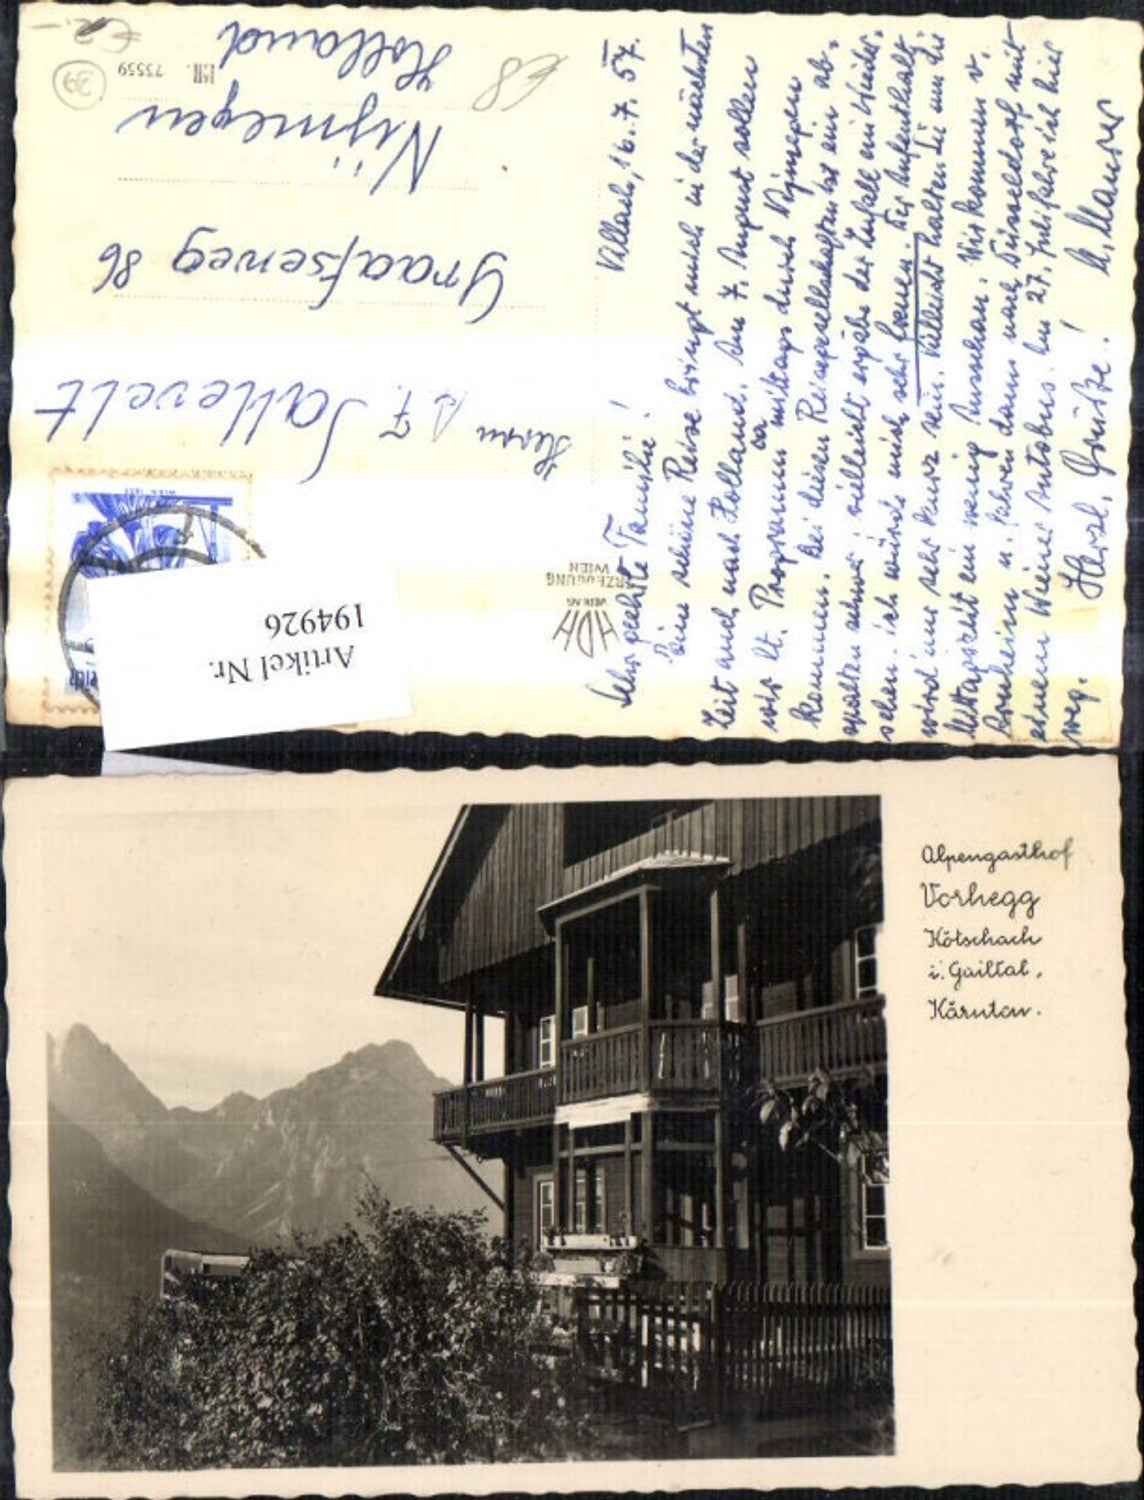 Villach, 16.7.57.
Sehr geehrte Familie!
Eine schöne Reise bringt mich in der nächsten
Zeit auch nach Holland. Am 7. August sollen
wir lt. Programm ca mittags durch Nijmegen
kommen. Bei diesen Reisegesellschaften ist ein ab-
spalten schwer, vielleicht ergäbe der Zufall ein Wieder-
sehen. Ich würde mich sehr freuen. Der Aufenthalt
wird nur sehr kurz sein. Vielleicht halten Sie um die
Mittagszeit ein wenig Ausschau. Wir kommen v.
Arnheim u. fahren dann nach Düsseldorf mit
einem Wiener Autobus. Am 27. Juli fahre ich hier
weg. Herzl. Grüße! A. Maurer
Herrn A. F. Sallevelt
Graafseweg 86
Nijmegen
Holland
73559
39
€8
€2.-
HDH
VERLAG
ERZEUGUNG
WIEN
Artikel Nr.
194926
Alpengasthof
Vorhegg
Kötschach
i. Gailtal,
Kärnten.